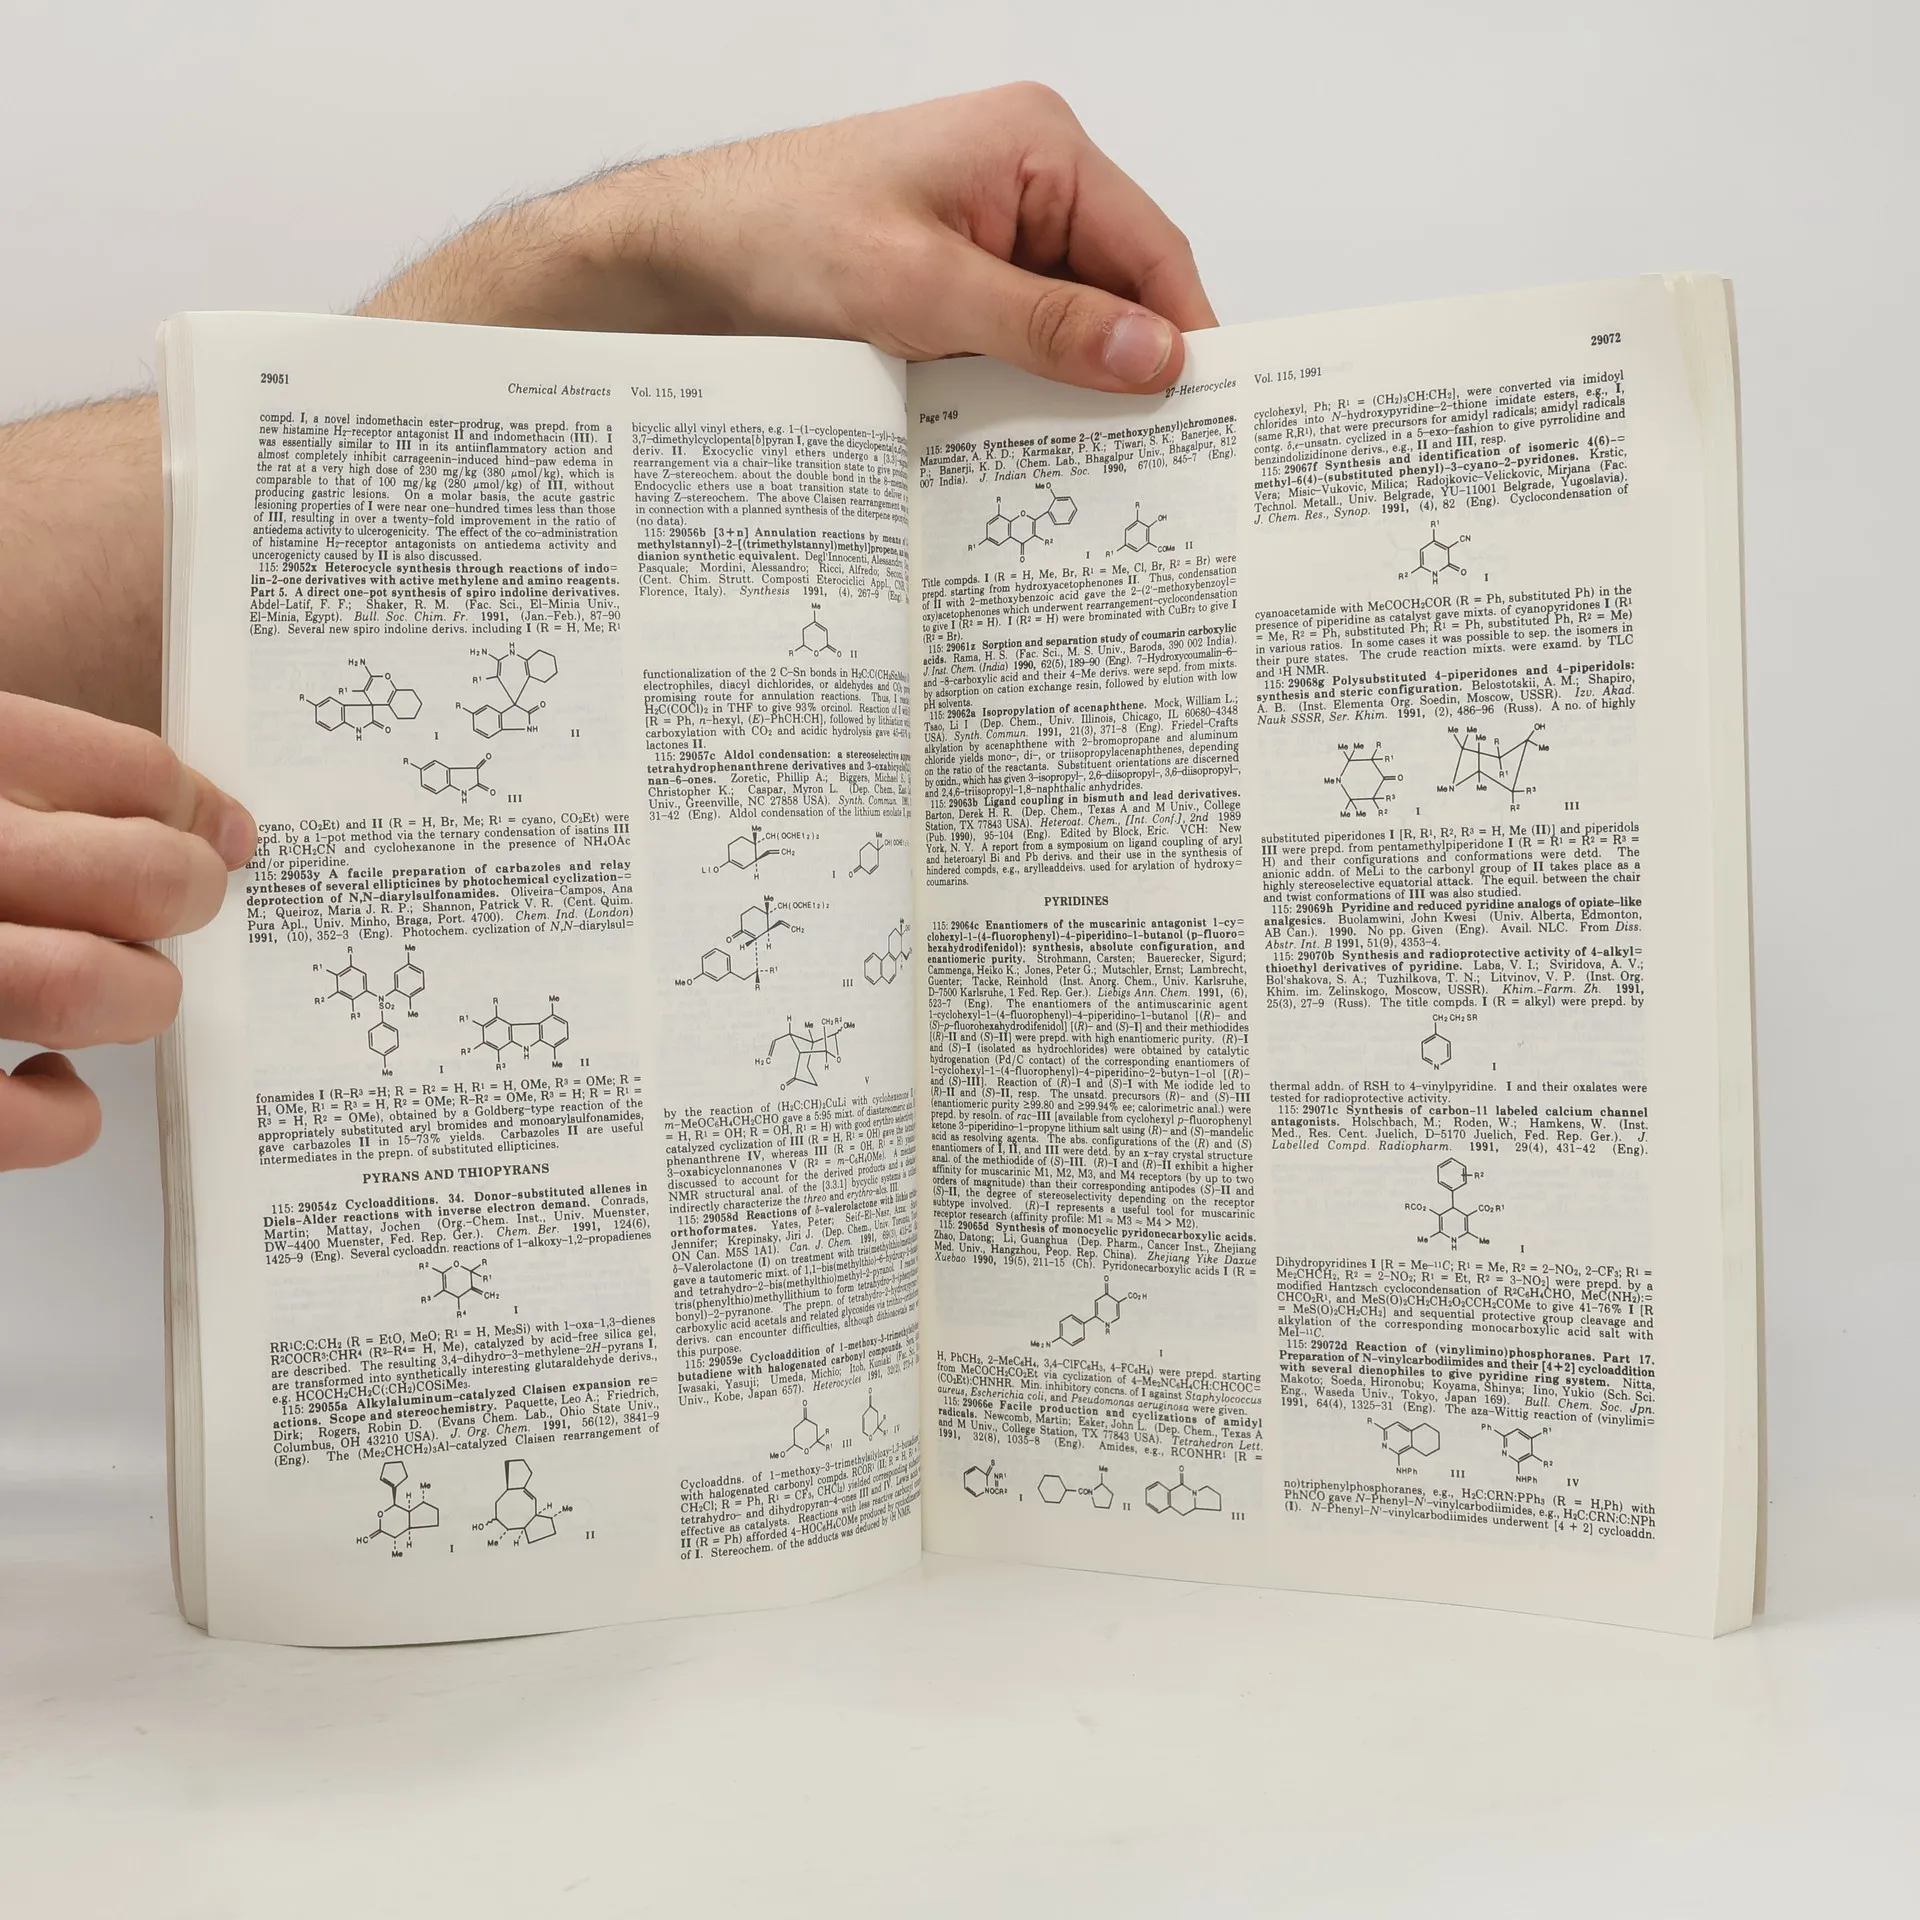 29051
Chemical Abstracts Vol. 115, 1991
compd. I, a novel indomethacin ester-prodrug, was prepd. from a
new histamine H₂-receptor antagonist II and indomethacin (III). I
was essentially similar to III in its antiinflammatory action and
almost completely inhibit carrageenin-induced hind-paw edema in
the rat at a very high dose of 230 mg/kg (380 μmol/kg), which is
comparable to that of 100 mg/kg (280 μmol/kg) of III, without
producing gastric lesions. On a molar basis, the acute gastric
lesioning properties of I were near one-hundred times less than those
of III, resulting in over a twenty-fold improvement in the ratio of
antiedema activity to ulcerogenicity. The effect of the co-administration
of histamine H₂-receptor antagonists on antiedema activity and
uncerogenicity caused by II is also discussed.
115: 29052x Heterocycle synthesis through reactions of indo=
lin-2-one derivatives with active methylene and amino reagents.
Part 5. A direct one-pot synthesis of spiro indoline derivatives.
Abdel-Latif, F. F.; Shaker, R. M. (Fac. Sci., El-Minia Univ.,
El-Minia, Egypt). Bull. Soc. Chim. Fr. 1991, (Jan.-Feb.), 87-90
(Eng). Several new spiro indoline derivs. including I (R = H, Me; R¹
H₂N O R¹ R N H O I
H₂N H N R¹ R O NH II
R O N H O III
cyano, CO₂Et) and II (R = H, Br, Me; R¹ = cyano, CO₂Et) were
epd. by a 1-pot method via the ternary condensation of isatins III
ith R¹CH₂CN and cyclohexanone in the presence of NH₄OAc
and/or piperidine.
115: 29053y A facile preparation of carbazoles and relay
syntheses of several ellipticines by photochemical cyclization-=
deprotection of N,N-diarylsulfonamides. Oliveira-Campos, Ana
M.; Queiroz, Maria J. R. P.; Shannon, Patrick V. R. (Cent. Quim.
Pura Apl., Univ. Minho, Braga, Port. 4700). Chem. Ind. (London)
1991, (10), 352-3 (Eng). Photochem. cyclization of N,N-diarylsul=
R R¹ R² R³ N SO₂ Me Me Me I
R R¹ R² R³ N H Me Me II
fonamides I (R-R³ =H; R = R² = H, R¹ = H, OMe, R³ = OMe; R =
H, OMe, R¹ = R³ = H, R² = OMe; R-R² = OMe, R³ = H; R = R¹ =
R³ = H, R² = OMe), obtained by a Goldberg-type reaction of the
appropriately substituted aryl bromides and monoarylsulfonamides,
gave carbazoles II in 15-73% yields. Carbazoles II are useful
intermediates in the prepn. of substituted ellipticines.
PYRANS AND THIOPYRANS
115: 29054z Cycloadditions. 34. Donor-substituted allenes in
Diels-Alder reactions with inverse electron demand. Conrads,
Martin; Mattay, Jochen (Org.-Chem. Inst., Univ. Muenster,
DW-4400 Muenster, Fed. Rep. Ger.). Chem. Ber. 1991, 124(6),
1425-9 (Eng). Several cycloaddn. reactions of 1-alkoxy-1,2-propadienes
R² O R R¹ CH₂ R³ R⁴ I
RR¹C:C:CH₂ (R = EtO, MeO; R¹ = H, Me₃Si) with 1-oxa-1,3-dienes
R²COCR³:CHR⁴ (R²-R⁴= H, Me), catalyzed by acid-free silica gel,
are described. The resulting 3,4-dihydro-3-methylene-2H-pyrans I,
are transformed into synthetically interesting glutaraldehyde derivs.,
e.g. HCOCH₂CH₂C(:CH₂)COSiMe₃.
115: 29055a Alkylaluminum-catalyzed Claisen expansion re=
actions. Scope and stereochemistry. Paquette, Leo A.; Friedrich,
Dirk; Rogers, Robin D. (Evans Chem. Lab., Ohio State Univ.,
Columbus, OH 43210 USA). J. Org. Chem. 1991, 56(12), 3841-9
(Eng). The (Me₂CHCH₂)₃Al-catalyzed Claisen rearrangement of
H Me O HC H Me I
HO H Me Me H II
bicyclic allyl vinyl ethers, e.g. 1-(1-cyclopenten-1-yl)-3-
3,7-dimethylcyclopenta[b]pyran I, gave the
deriv. II. Exocyclic vinyl ethers undergo a [3,3]-
rearrangement via a chair-like transition state to give
have Z-stereochem. about the double bond in the
Endocyclic ethers use a boat transition state to deliver
having Z-stereochem. The above Claisen rearrangement
in connection with a planned synthesis of the diterpene
(no data).
115: 29056b [3+n] Annulation reactions by means
methylstannyl)-2-[(trimethylstannyl)methyl]propene,
dianion synthetic equivalent. Degl'Innocenti,
Pasquale; Mordini, Alessandro; Ricci, Alfredo;
(Cent. Chim. Strutt. Composti Eterociclici Appl.,
Florence, Italy). Synthesis 1991, (4), 267-9
Me R O O II
functionalization of the 2 C-Sn bonds in
electrophiles, diacyl dichlorides, or aldehydes and
promising route for annulation reactions. Thus,
H₂C(COCl)₂ in THF to give 93% orcinol. Reaction of
[R = Ph, n-hexyl, (E)-PhCH:CH], followed by lithiation
carboxylation with CO₂ and acidic hydrolysis gave
lactones II.
115: 29057c Aldol condensation: a stereoselective
tetrahydrophenanthrene derivatives and
nan-6-ones. Zoretic, Phillip A.; Biggers, Michael S.;
Christopher K.; Caspar, Myron L. (Dep. Chem.,
Univ., Greenville, NC 27858 USA). Synth. Commun.
31-42 (Eng). Aldol condensation of the lithium enolate
Me CH(OCHE12)2 CH₂ LiO H I O
Me CH(OCHE12)2 CH₂ O H H MeO R¹ R III
H Me CH₂R² OMe H₂C H O O V
by the reaction of (H₂C:CH)₂CuLi with
m-MeOC₆H₄CH₂CHO gave a 5:95 mixt. of
= H, R¹ = OH; R = OH, R¹ = H) with good erythro
catalyzed cyclization of III (R = H, R¹ = OH) gave
phenanthrene IV, whereas III (R = OH, R¹ = H)
3-oxabicyclononanones V (R² = m-C₆H₄OMe).
discussed to account for the derived products and
NMR structural anal. of the [3.3.1] bycyclic
indirectly characterize the threo and erythro-alcs. III.
115: 29058d Reactions of δ-valerolactone with
orthoformates. Yates, Peter; Seif-El-Nasr,
Jennifer; Krepinsky, Jiri J. (Dep. Chem., Univ.
ON Can. M5S 1A1). Can. J. Chem. 1991, 69(3),
δ-Valerolactone (I) on treatment with
gave a tautomeric mixt. of
and tetrahydro-2-bis(methylthio)methyl-2-pyranol.
tris(phenylthio)methyllithium to form
bonyl)-2-pyranone. The prepn. of
carboxylic acid acetals and related glycosides via
derivs. can encounter difficulties, although
this purpose.
115: 29059e Cycloaddition of 1-methoxy-3-
butadiene with halogenated carbonyl compounds.
Iwasaki, Yasuji; Umeda, Michio; Itoh, Kuniaki
Univ., Kobe, Japan 657). Heterocycles 1991, 32(2),
O MeO O R R¹ III IV
Cycloaddns. of 1-methoxy-3-trimethylsilyloxy-1,3-butadiene
with halogenated carbonyl compds. RCOR¹
CH₂Cl; R = Ph, R¹ = CF₃, CHCl₂) yielded corresponding
tetrahydro- and dihydropyran-4-ones III and IV.
effective as catalysts. Reactions with less reactive
II (R = Ph) afforded 4-HOC₆H₄COMe produced by
of I. Stereochem. of the adducts was deduced by ¹H NMR.
Page 749
27-Heterocycles Vol. 115, 1991
29072
115: 29060y Syntheses of some 2-(2′-methoxyphenyl)chromones.
Mazumdar, A. K. D.; Karmakar, P. K.; Tiwari, S. K.; Banerjee, K.
P.; Banerji, K. D. (Chem. Lab., Bhagalpur Univ., Bhagalpur, 812
007 India). J. Indian Chem. Soc. 1990, 67(10), 845-7 (Eng).
MeO R O R¹ R² O I
R OH R¹ COMe II
Title compds. I (R = H, Me, Br, R¹ = Me, Cl, Br, R² = Br) were
prepd. starting from hydroxyacetophenones II. Thus, condensation
of II with 2-methoxybenzoic acid gave the 2-(2′-methoxybenzoyl=
oxy)acetophenones which underwent rearrangement-cyclocondensation
to give I (R² = H). I (R² = H) were brominated with CuBr₂ to give I
(R² = Br).
115: 29061z Sorption and separation study of coumarin carboxylic
acids. Rama, H. S. (Fac. Sci., M. S. Univ., Baroda, 390 002 India).
J. Inst. Chem. (India) 1990, 62(5), 189-90 (Eng). 7-Hydroxycoumalin-6-
and -8-carboxylic acid and their 4-Me derivs. were sepd. from mixts.
by adsorption on cation exchange resin, followed by elution with low
pH solvents.
115: 29062a Isopropylation of acenaphthene. Mock, William L.;
Tsao, Li I (Dep. Chem., Univ. Illinois, Chicago, IL 60680-4348
USA). Synth. Commun. 1991, 21(3), 371-8 (Eng). Friedel-Crafts
alkylation by acenaphthene with 2-bromopropane and aluminum
chloride yields mono-, di-, or triisopropylacenaphthenes, depending
on the ratio of the reactants. Substituent orientations are discerned
by oxidn., which has given 3-isopropyl-, 2,6-diisopropyl-, 3,6-diisopropyl-,
and 2,4,6-triisopropyl-1,8-naphthalic anhydrides.
115: 29063b Ligand coupling in bismuth and lead derivatives.
Barton, Derek H. R. (Dep. Chem., Texas A and M Univ., College
Station, TX 77843 USA). Heteroat. Chem., [Int. Conf.], 2nd 1989
(Pub. 1990), 95-104 (Eng). Edited by Block, Eric. VCH: New
York, N. Y. A report from a symposium on ligand coupling of aryl
and heteroaryl Bi and Pb derivs. and their use in the synthesis of
hindered compds, e.g., arylleaddeivs. used for arylation of hydroxy=
coumarins.
PYRIDINES
115: 29064c Enantiomers of the muscarinic antagonist 1-cy=
clohexyl-1-(4-fluorophenyl)-4-piperidino-1-butanol (p-fluoro=
hexahydrodifenidol): synthesis, absolute configuration, and
enantiomeric purity. Strohmann, Carsten; Bauerecker, Sigurd;
Cammenga, Heiko K.; Jones, Peter G.; Mutschler, Ernst; Lambrecht,
Guenter; Tacke, Reinhold (Inst. Anorg. Chem., Univ. Karlsruhe,
D-7500 Karlsruhe, 1 Fed. Rep. Ger.). Liebigs Ann. Chem. 1991, (6),
523-7 (Eng). The enantiomers of the antimuscarinic agent
1-cyclohexyl-1-(4-fluorophenyl)-4-piperidino-1-butanol [(R)- and
(S)-p-fluorohexahydrodifenidol] [(R)- and (S)-I] and their methiodides
[(R)-II and (S)-II] were prepd. with high enantiomeric purity. (R)-I
and (S)-I (isolated as hydrochlorides) were obtained by catalytic
hydrogenation (Pd/C contact) of the corresponding enantiomers of
1-cyclohexyl-1-(4-fluorophenyl)-4-piperidino-2-butyn-1-ol [(R)-
and (S)-III]. Reaction of (R)-I and (S)-I with Me iodide led to
(R)-II and (S)-II, resp. The unsatd. precursors (R)- and (S)-III
(enantiomeric purity ≥99.80 and ≥99.94% ee; calorimetric anal.) were
prepd. by resoln. of rac-III [available from cyclohexyl p-fluorophenyl
ketone 3-piperidino-1-propyne lithium salt using (R)- and (S)-mandelic
acid as resolving agents. The abs. configurations of the (R) and (S)
enantiomers of I, II, and III were detd. by an x-ray crystal structure
anal. of the methiodide of (S)-III. (R)-I and (R)-II exhibit a higher
affinity for muscarinic M1, M2, M3, and M4 receptors (by up to two
orders of magnitude) than their corresponding antipodes (S)-II and
(S)-II, the degree of stereoselectivity depending on the receptor
subtype involved. (R)-I represents a useful tool for muscarinic
receptor research (affinity profile: M1 ≈ M3 ≈ M4 > M2).
115: 29065d Synthesis of monocyclic pyridonecarboxylic acids.
Zhao, Datong; Li, Guanghua (Dep. Pharm., Cancer Inst., Zhejiang
Med. Univ., Hangzhou, Peop. Rep. China). Zhejiang Yike Daxue
Xuebao 1990, 19(5), 211-15 (Ch). Pyridonecarboxylic acids I (R =
O CO₂H N H Me₂N I
H, PhCH₂, 2-MeC₆H₄, 3,4-ClFC₆H₃, 4-FC₆H₄) were prepd. starting
from MeCOCH₂CO₂Et via cyclization of 4-Me₂NC₆H₄CH:CHCOC=
(CO₂Et):CHNHR. Min. inhibitory concns. of I against Staphylococcus
aureus, Escherichia coli, and Pseudomonas aeruginosa were given.
115: 29066e Facile production and cyclizations of amidyl
radicals. Newcomb, Martin; Esker, John L. (Dep. Chem., Texas A
and M Univ., College Station, TX 77843 USA). Tetrahedron Lett.
1991, 32(8), 1035-8 (Eng). Amides, e.g., RCONHR¹ [R =
S NR¹ NOCR² I
CON Me II
O N III
cyclohexyl, Ph; R¹ = (CH₂)₃CH:CH₂], were converted via imidoyl
chlorides into N-hydroxypyridine-2-thione imidate esters, e.g., I,
(same R,R¹), that were precursors for amidyl radicals; amidyl radicals
contg. δ,ε-unsatn. cyclized in a 5-exo-fashion to give pyrrolidine and
benzindolizidinone derivs., e.g., II and III, resp.
115: 29067f Synthesis and identification of isomeric 4(6)-=
methyl-6(4)-(substituted phenyl)-3-cyano-2-pyridones. Krstic,
Vera; Misic-Vukovic, Milica; Radojkovic-Velickovic, Mirjana (Fac.
Technol. Metall., Univ. Belgrade, YU-11001 Belgrade, Yugoslavia).
J. Chem. Res., Synop. 1991, (4), 82 (Eng). Cyclocondensation of
R¹ CN R² N H O I
cyanoacetamide with MeCOCH₂COR (R = Ph, substituted Ph) in the
presence of piperidine as catalyst gave mixts. of cyanopyridones I (R¹
= Me, R² = Ph, substituted Ph; R¹ = Ph, substituted Ph, R² = Me)
in various ratios. In some cases it was possible to sep. the isomers in
their pure states. The crude reaction mixts. were examd. by TLC
and ¹H NMR.
115: 29068g Polysubstituted 4-piperidones and 4-piperidols:
synthesis and steric configuration. Belostotskii, A. M.; Shapiro,
A. B. (Inst. Elementa Org. Soedin, Moscow, USSR). Izv. Akad.
Nauk SSSR, Ser. Khim. 1991, (2), 486-96 (Russ). A no. of highly
Me Me R R¹ MeN O R³ Me Me R² I
Me Me Me R OH Me R¹ MeN R³ R² III
substituted piperidones I [R, R¹, R², R³ = H, Me (II)] and piperidols
III were prepd. from pentamethylpiperidone I (R = R¹ = R² = R³ =
H) and their configurations and conformations were detd. The
anionic addn. of MeLi to the carbonyl group of II takes place as a
highly stereoselective equatorial attack. The equil. between the chair
and twist conformations of III was also studied.
115: 29069h Pyridine and reduced pyridine analogs of opiate-like
analgesics. Buolamwini, John Kwesi (Univ. Alberta, Edmonton,
AB Can.). 1990. No pp. Given (Eng). Avail. NLC. From Diss.
Abstr. Int. B 1991, 51(9), 4353-4.
115: 29070b Synthesis and radioprotective activity of 4-alkyl=
thioethyl derivatives of pyridine. Laba, V. I.; Sviridova, A. V.;
Bol'shakova, S. A.; Tuzhilkova, T. N.; Litvinov, V. P. (Inst. Org.
Khim. im. Zelinskogo, Moscow, USSR). Khim.-Farm. Zh. 1991,
25(3), 27-9 (Russ). The title compds. I (R = alkyl) were prepd. by
CH₂CH₂SR N I
thermal addn. of RSH to 4-vinylpyridine. I and their oxalates were
tested for radioprotective activity.
115: 29071c Synthesis of carbon-11 labeled calcium channel
antagonists. Holschbach, M.; Roden, W.; Hamkens, W. (Inst.
Med., Res. Cent. Juelich, D-5170 Juelich, Fed. Rep. Ger.). J.
Labelled Compd. Radiopharm. 1991, 29(4), 431-42 (Eng).
R² RCO₂ CO₂R¹ Me N H Me I
Dihydropyridines I [R = Me-¹¹C; R¹ = Me, R² = 2-NO₂, 2-CF₃; R¹ =
Me₂CHCH₂, R² = 2-NO₂; R¹ = Et, R² = 3-NO₂] were prepd. by a
modified Hantzsch cyclocondensation of R²C₆H₄CHO, MeC(NH₂):=
CHCO₂R¹, and MeS(O)₂CH₂CH₂O₂CCH₂COMe to give 41-76% I [R
= MeS(O)₂CH₂CH₂] and sequential protective group cleavage and
alkylation of the corresponding monocarboxylic acid salt with
MeI-¹¹C.
115: 29072d Reaction of (vinylimino)phosphoranes. Part 17.
Preparation of N-vinylcarbodiimides and their [4+2] cycloaddition
with several dienophiles to give pyridine ring system. Nitta,
Makoto; Soeda, Hironobu; Koyama, Shinya; Iino, Yukio (Sch. Sci.
Eng., Waseda Univ., Tokyo, Japan 169). Bull. Chem. Soc. Jpn.
1991, 64(4), 1325-31 (Eng). The aza-Wittig reaction of (vinylimi=
R N NHPh III
Ph R¹ N R² NHPh IV
no)triphenylphosphoranes, e.g., H₂C:CRN:PPh₃ (R = H,Ph) with
PhNCO gave N-Phenyl-N′-vinylcarbodiimides, e.g., H₂C:CRN:C:NPh
(I). N-Phenyl-N′-vinylcarbodiimides underwent [4 + 2] cycloaddn.